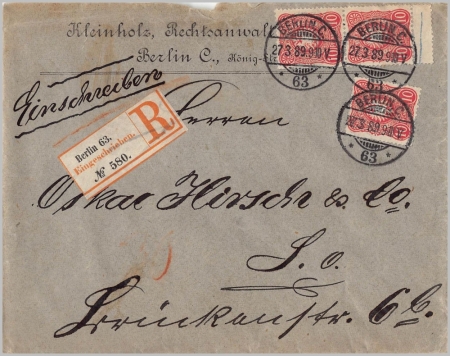 Kleinholz, Rechtsanwal
Berlin C., König-
Einschreiben
BERLIN. C.
27.3 89.9-10V.
* 63 *
BERLIN. C.
27.3 89.9-10V.
* 63 *
BERLIN. C.
27.3 89.9-10V.
* 63 *
10
10
10
Berlin 63.
Eingeschrieben.
№ 580.
R
Herren
Oskar Hirsch & Co.
S. o.
Brückenstr. 6b.